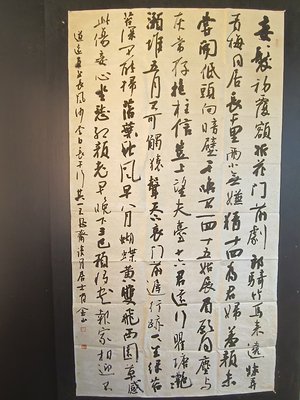 妾髮初覆額折花門前劇郎騎竹馬來遶床弄
青梅同居長干里兩小無嫌猜十四為君婦羞顏未
嘗開低頭向暗壁千喚不一回十五始展眉願同塵與
灰常存抱柱信豈上望夫臺十六君遠行瞿塘灩
澦堆五月不可觸猿聲天上哀門前遲行跡一一生綠苔
苔深不能掃落葉秋風早八月蝴蝶黃雙飛西園草感
此傷妾心坐愁紅顏老早晚下三巴預將書報家相迎不
道遠直至長風沙李白長干行其一居士